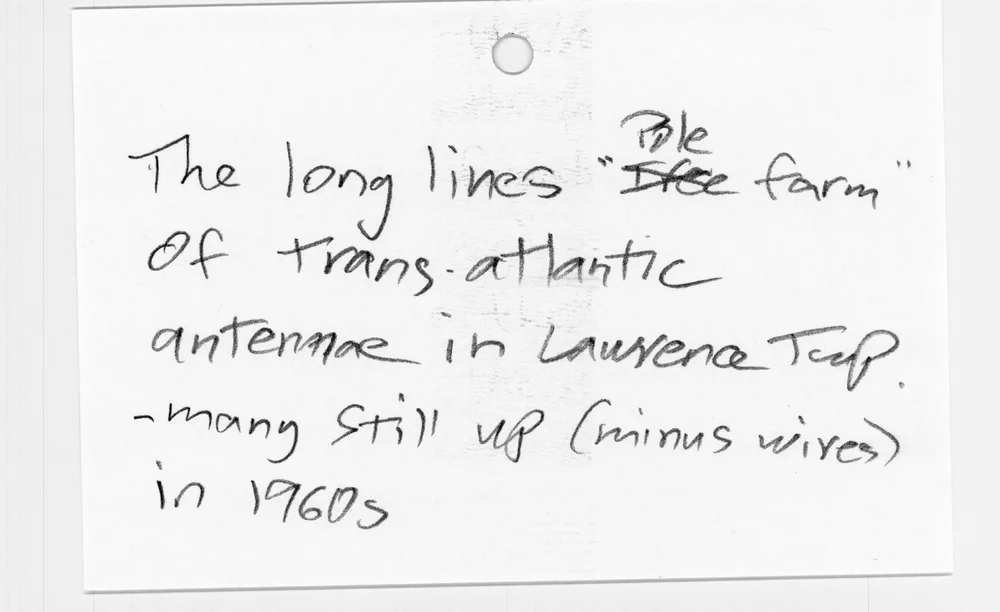 The long lines "Pole farm"
Of trans-atlantic
antennae in Lawrence Twp.
-many still up (minus wires)
in 1960s